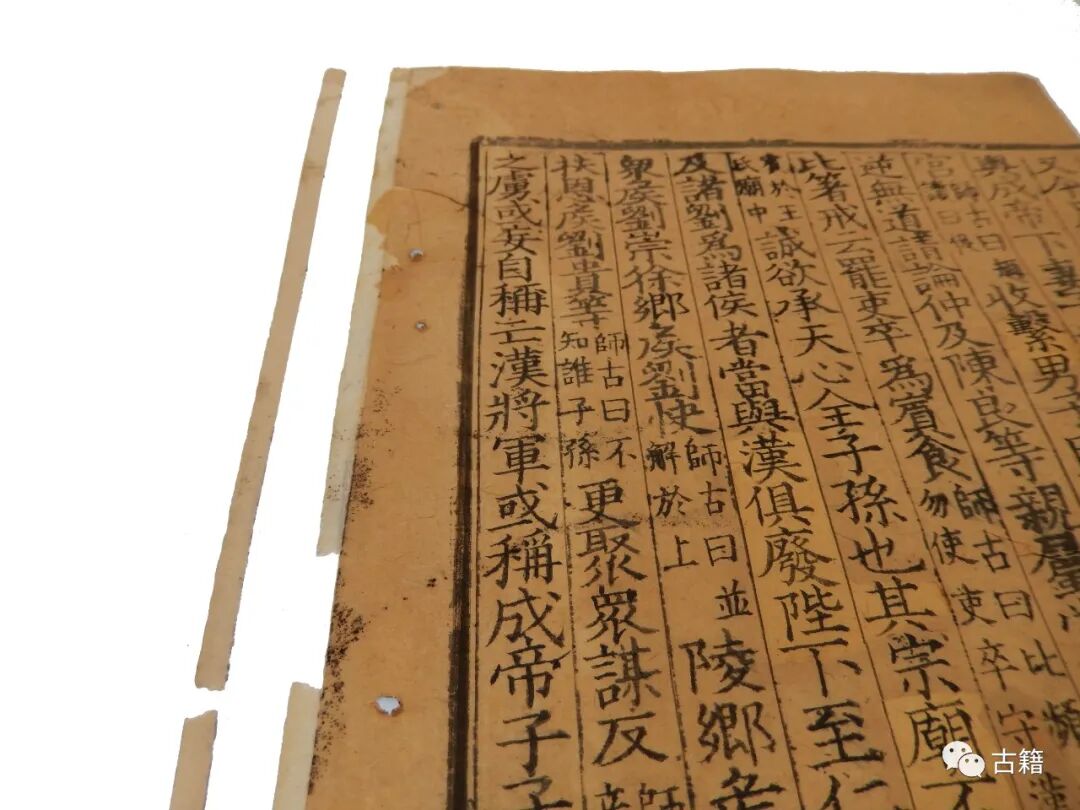 輿成帝下妻
宮師古曰收繫男子
逆無道請論仲及陳良等親屬
比著戒云罷吏卒爲賓食師古曰比頻勿使吏卒守
賓於王氏廟中誠欲承天心全子孫也其崇廟不
及諸劉爲諸侯者當與漢俱廢陛下至仁
衆侯劉崇徐鄉侯劉快師古曰並解於上陵鄉侯
扶恩侯劉貴等師古曰不知誰子孫更聚衆謀反師
之虜或妄自稱亡漢將軍或稱成帝子子
古籍